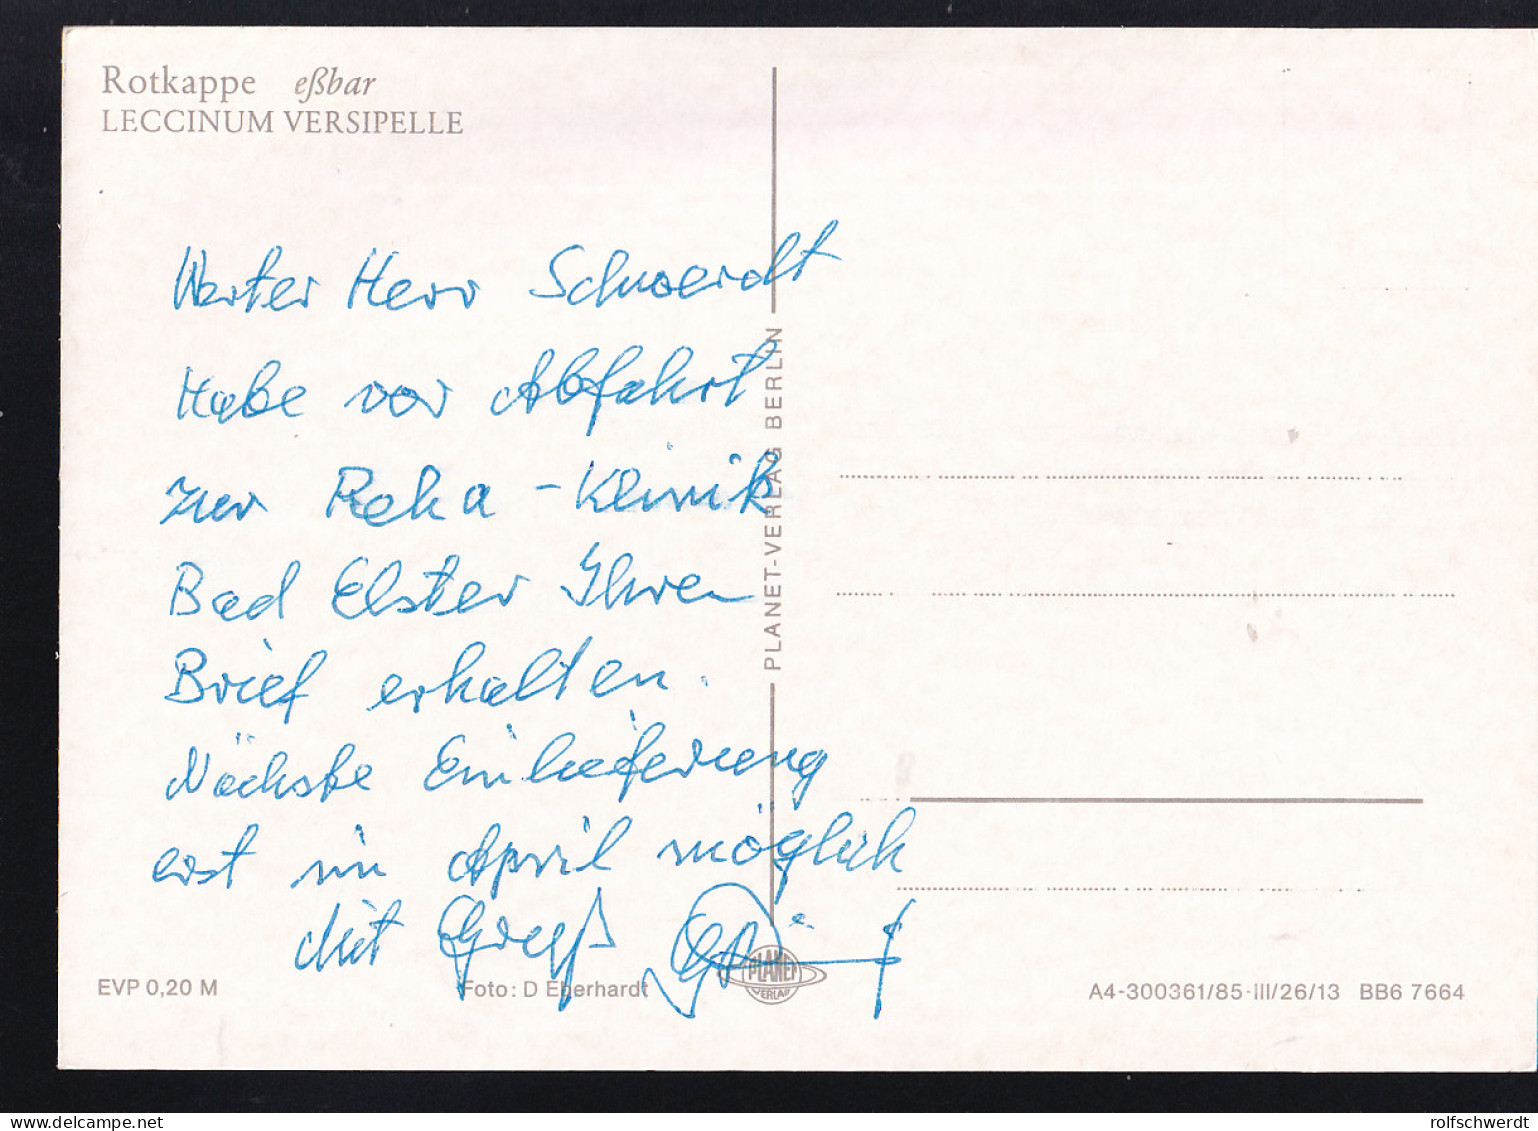 Rotkappe eßbar
LECCINUM VERSIPELLE
Werter Herr Schwerdt
Habe vor Abfahrt
zur Reha-Klinik
Bad Elster Ihren
Brief erhalten.
Nächste Einlieferung
erst im April möglich
Mit Gruß
PLANET-VERLAG BERLIN
PLANET
VERLAG
EVP 0,20 M
Foto: D Eberhardt
A4-300361/85-III/26/13 BB6 7664
delcampe.net
rolfschwerdt